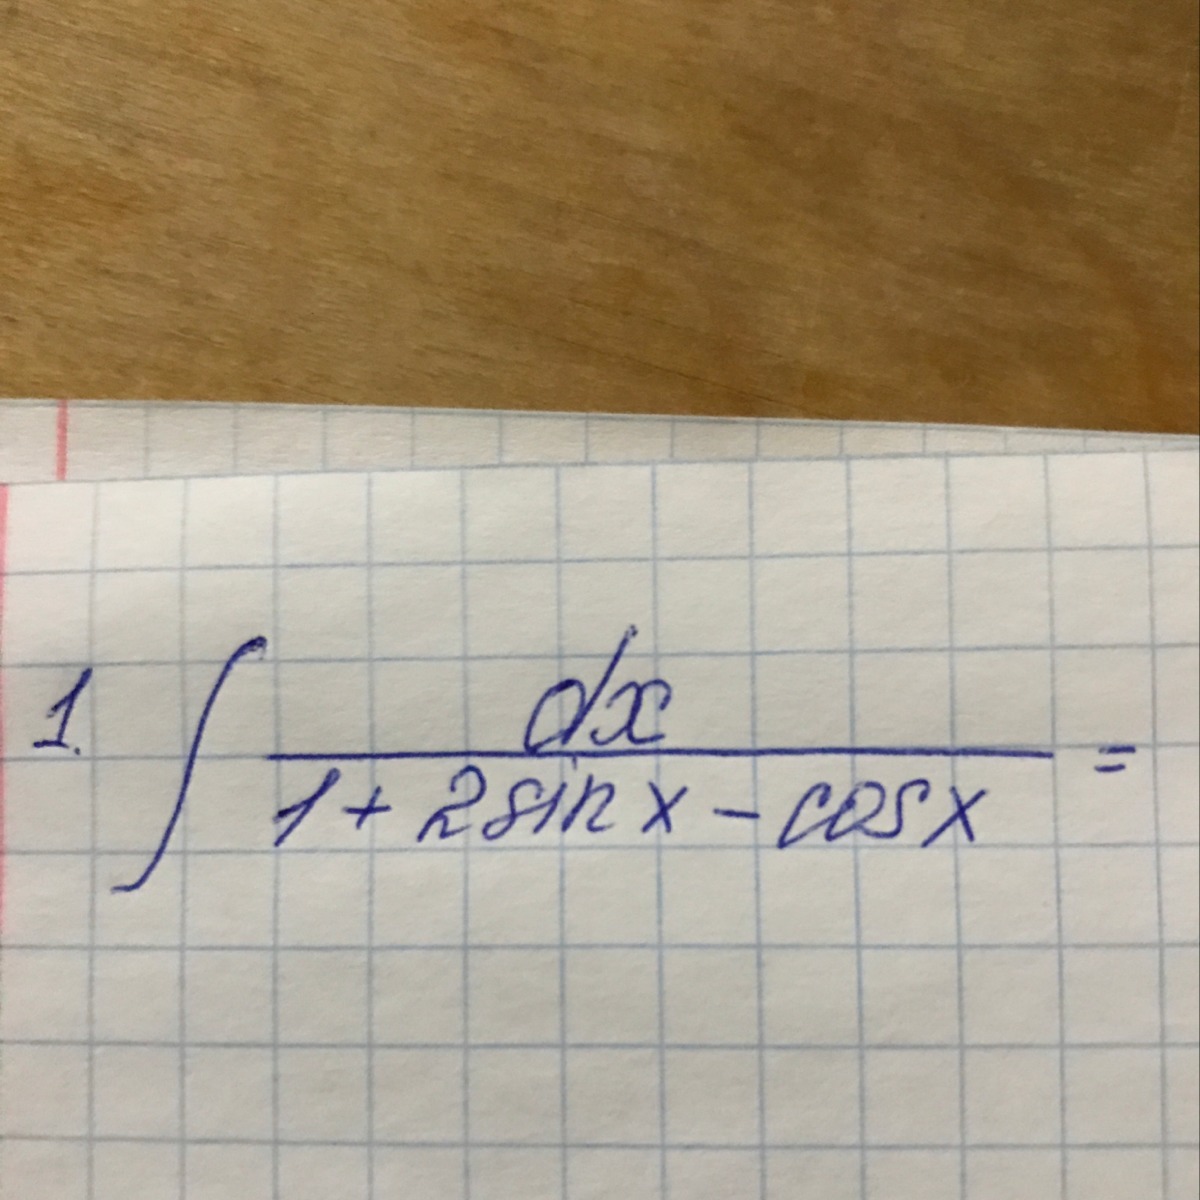 1. ∫ dx / (1 + 2 sin x - cos x) =